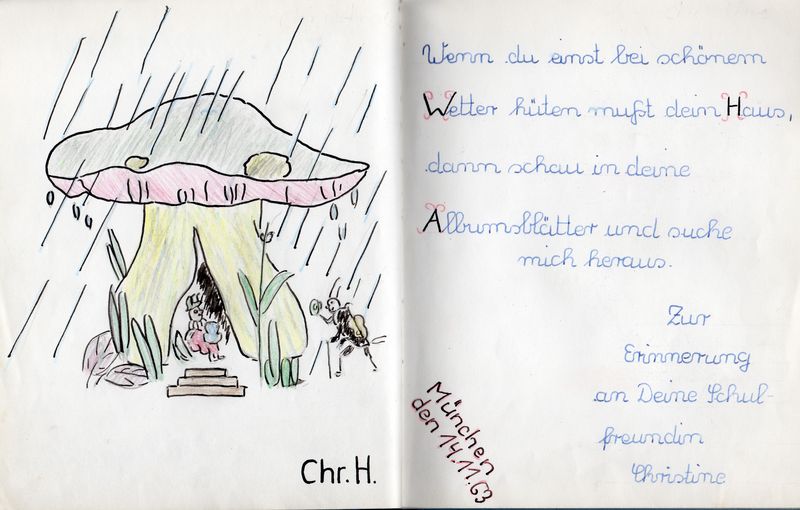 Chr. H.
Wenn du einst bei schönem
Wetter hüten mußt dein Haus,
dann schau in deine
Albumsblätter und suche
mich heraus.
Zur
Erinnerung
an Deine Schul-
freundin
Christine
München
den 14.11.63